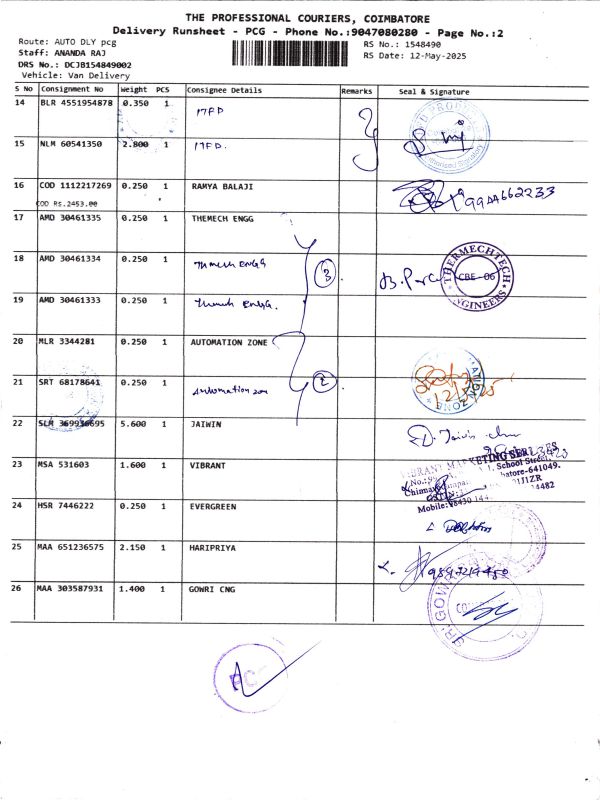 THE PROFESSIONAL COURIERS, COIMBATORE
Delivery Runsheet - PCG - Phone No.:9047080280 - Page No.:2
Route: AUTO DLY pcg
Staff: ANANDA RAJ
DRS No.: DCJB154849002
Vehicle: Van Delivery
RS No.: 1548490
RS Date: 12-May-2025
S No Consignment No Weight PCS Consignee Details Remarks Seal & Signature
14 BLR 4551954878 0.350 1 17FD
15 NLM 60541350 2.800 1 17FD.
16 COD 1112217269 0.250 1 RAMYA BALAJI
COD RS.2453.00
17 AMD 30461335 0.250 1 THEMECH ENGG
18 AMD 30461334 0.250 1 Themech ENGG 3
THERMECHTECH ENGINEERS CBE-06
19 AMD 30461333 0.250 1 Themech ENGG.
20 MLR 3344281 0.250 1 AUTOMATION ZONE
21 SRT 68178641 0.250 1 Automation zon 2
22 SLM 369936695 5.600 1 JAIWIN
23 MSA 531603 1.600 1 VIBRANT
VIBRANT MARKETING SERVICES
School Street,
641049.
Mobile:98430
24 HSR 7446222 0.250 1 EVERGREEN
25 MAA 651236575 2.150 1 HARIPRIYA
26 MAA 303587931 1.400 1 GOWRI CNG